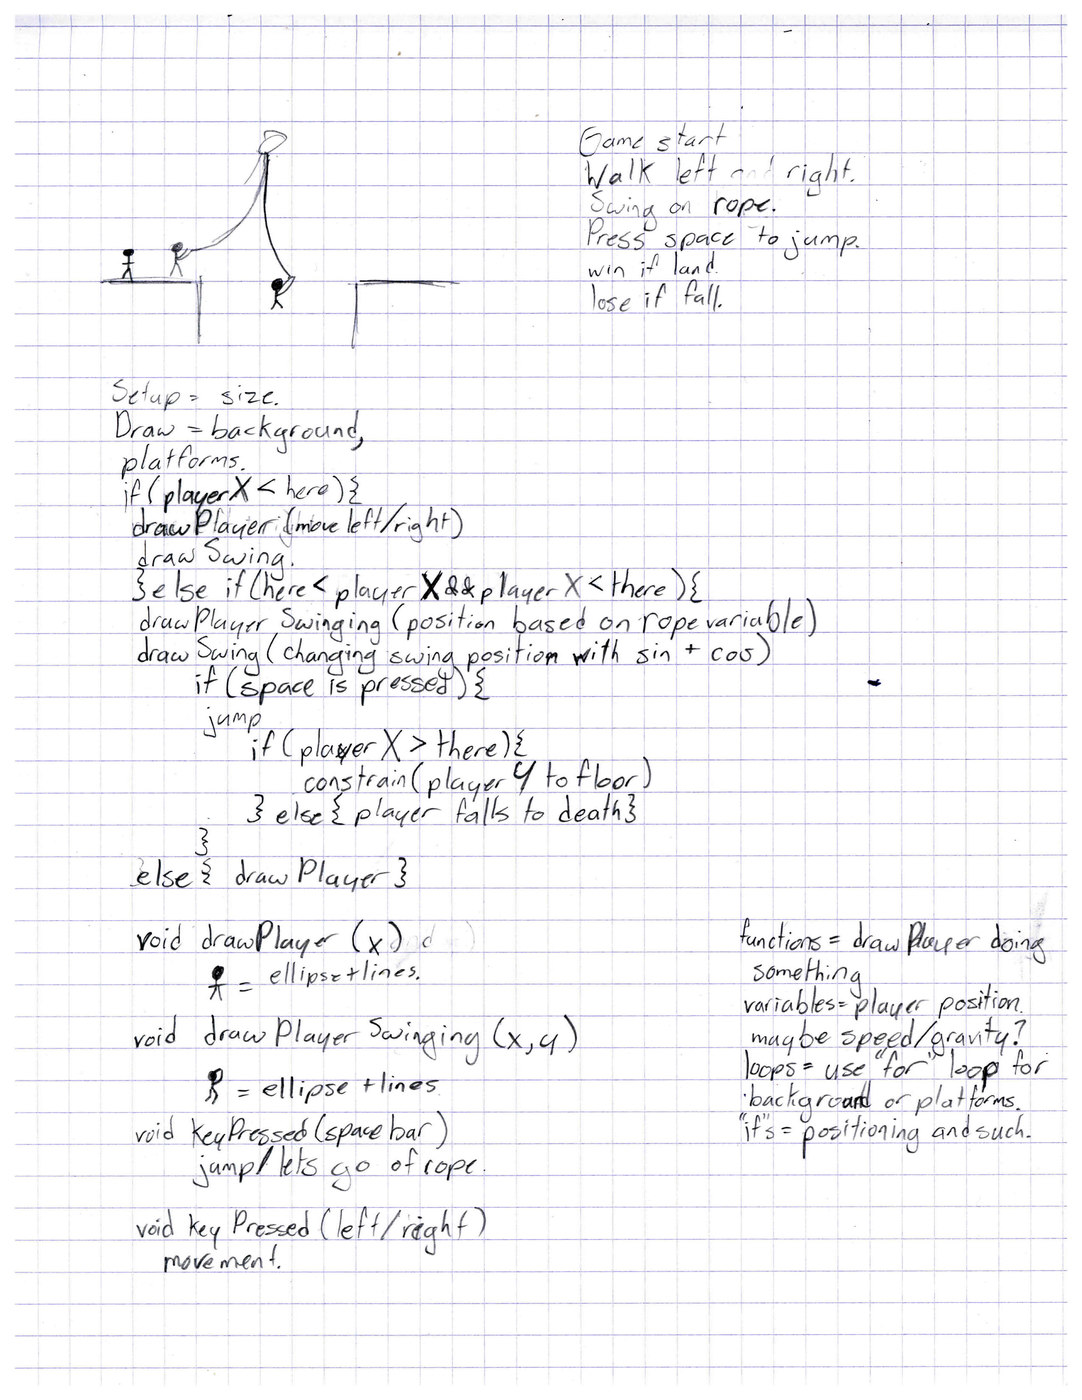 Game start
Walk left and right.
Swing on rope.
Press space to jump.
win if land.
lose if fall.
Setup = size.
Draw = background,
platforms.
if (playerX < here){
drawPlayer (move left/right)
draw Swing.
}else if (here < playerX && playerX < there){
drawPlayer Swinging (position based on rope variable)
drawSwing (changing swing position with sin + cos)
if (space is pressed){
jump
if (playerX > there){
constrain(playerY to floor)
} else { player falls to death}
}
else { drawPlayer }
void drawPlayer (x)
= ellipse + lines.
void drawPlayer Swinging (x,y)
= ellipse + lines
void keyPressed (space bar)
jump/lets go of rope.
void keyPressed (left/right)
movement.
functions = drawPlayer doing
something
variables= player position.
maybe speed/gravity?
loops = use "for" loop for
background or platforms.
"if"s = positioning and such.